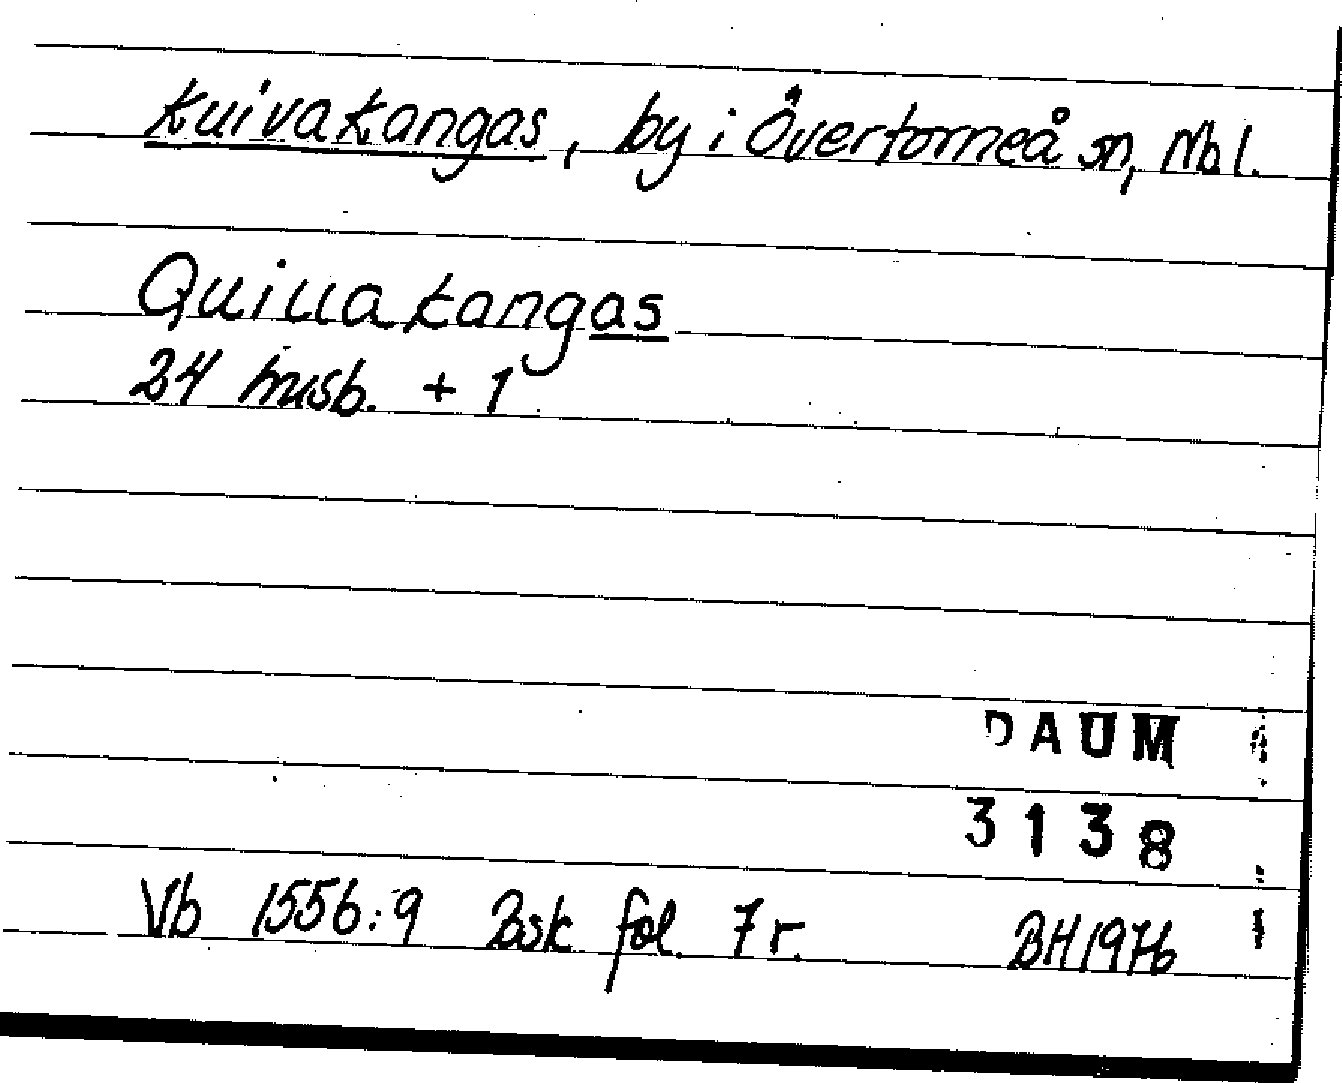 Kuivakangas, by i Övertorneå sn, Nb l.
Quiuakangas
24 husb. + 1
DAUM
3138
Vb 1556:9 Bsk fol. 7 r. BH 1976